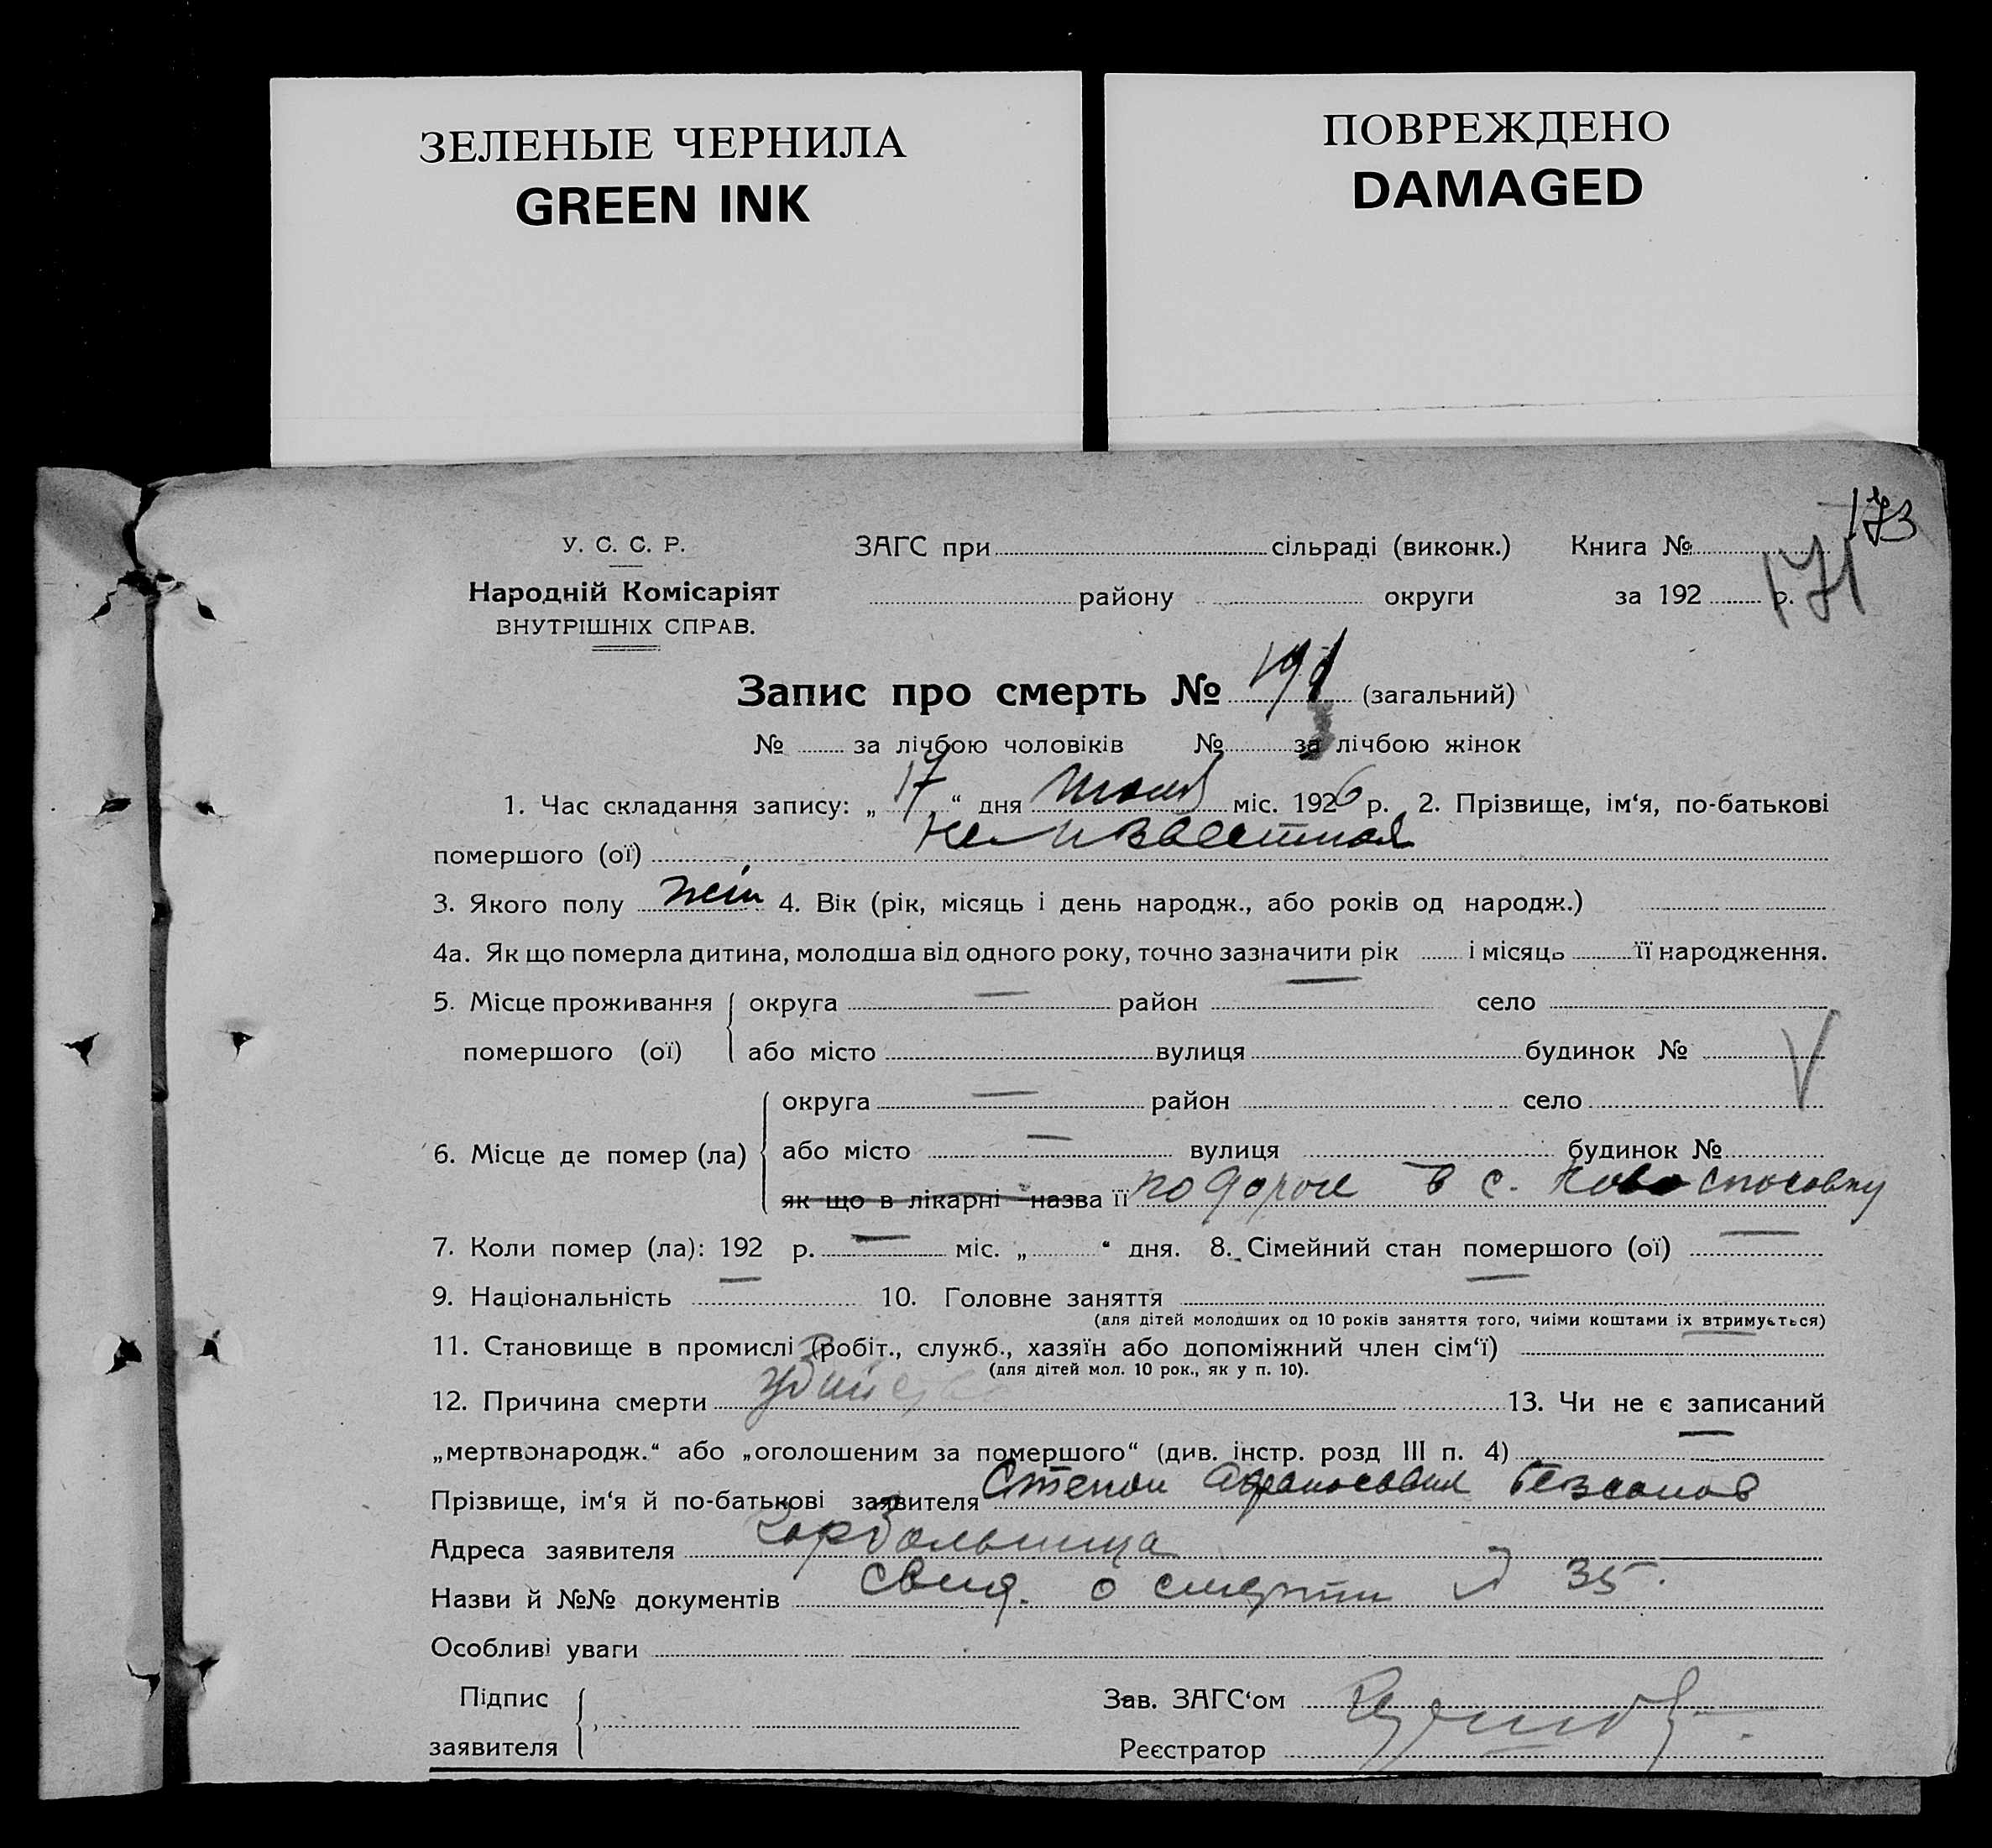 ЗЕЛЕНЫЕ ЧЕРНИЛА
GREEN INK
ПОВРЕЖДЕНО
DAMAGED
173
171
У. С. С. Р.
Народній Комісаріят
ВНУТРІШНІХ СПРАВ.
ЗАГС при сільраді (виконк.) Книга №
району округи за 192 р.
Запис про смерть № 191 (загальний)
№ за лічбою чоловіків № за лічбою жінок
1. Час складання запису: „ 17 “ дня июля міс. 1926 р. 2. Прізвище, ім‘я, по-батькові
помершого (ої) Неизвестная
3. Якого полу жін 4. Вік (рік, місяць і день народж., або років од народж.)
4а. Як що померла дитина, молодша від одного року, точно зазначити рік і місяць її народження.
5. Місце проживання округа — район — село
помершого (ої) або місто вулиця будинок №
6. Місце де помер (ла) округа — район село
або місто — вулиця будинок №
як що в лікарні назва її по дороге в с.
7. Коли помер (ла): 192 р. — міс. „ “ дня. 8. Сімейний стан помершого (ої) —
9. Національність — 10. Головне заняття —
(для дітей молодших од 10 років заняття того, чиїми коштами їх втримується)
11. Становище в промислі (робіт., служб., хазяїн або допоміжний член сім‘ї) —
(для дітей мол. 10 рок., як у п. 10).
12. Причина смерти Убийство 13. Чи не є записаний
„мертвонародж.“ або „оголошеним за помершого“ (див. інстр. розд III п. 4) —
Прізвище, ім‘я й по-батькові заявителя Степан
Адреса заявителя Горбольница
Назви й №№ документів свид. о смерти № 35.
Особливі уваги
Підпис
заявителя
Зав. ЗАГС‘ом
Реєстратор